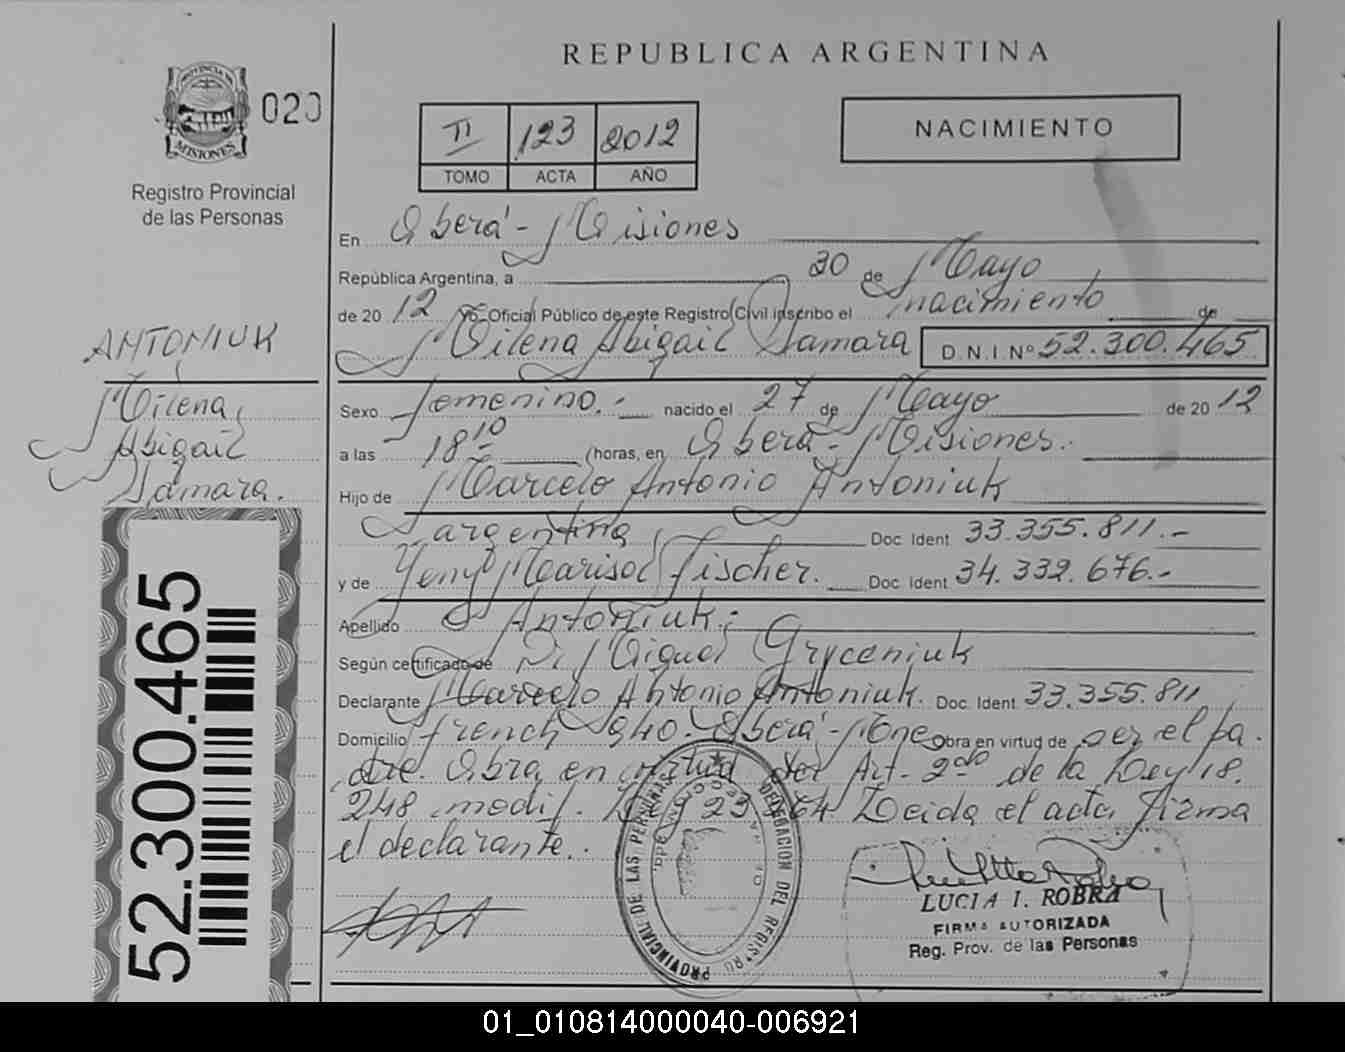 REPUBLICA ARGENTINA
PROVINCIA DE
MISIONES
020
Registro Provincial
de las Personas
II 123 2012
TOMO ACTA AÑO
NACIMIENTO
En Oberá - Misiones
República Argentina, a 30 de Mayo
de 20 12 Yo, Oficial Público de este Registro Civil inscribo el nacimiento de
Milena Abigail Samara D.N.I. Nº 52.300.465
ANTONIUK
Milena
Abigail
Samara.
Sexo femenino.- nacido el 27 de Mayo de 20 12
a las 18 10 horas, en Oberá - Misiones.
Hijo de Marcelo Antonio Antoniuk
argentina Doc. Ident 33.355.811.-
y de Yeny Marisol Fischer. Doc. Ident 34.332.676.-
Apellido Antoniuk.-
Según certificado de Dr. Miguel Gryceniuk
Declarante Marcelo Antonio Antoniuk. Doc. Ident 33.355.811
Domicilio French 940. Oberá - Mnes obra en virtud de ser el pa-
dre. Obra en virtud del Art. 2do de la Ley 18.
248 modif. Leída el acta, firma
el declarante..
52.300.465
PROVINCIAL DE LAS PERSONAS
DELEGACION DEL REGISTRO
LUCIA I. ROBRA
FIRMA AUTORIZADA
Reg. Prov. de las Personas
01_010814000040-006921